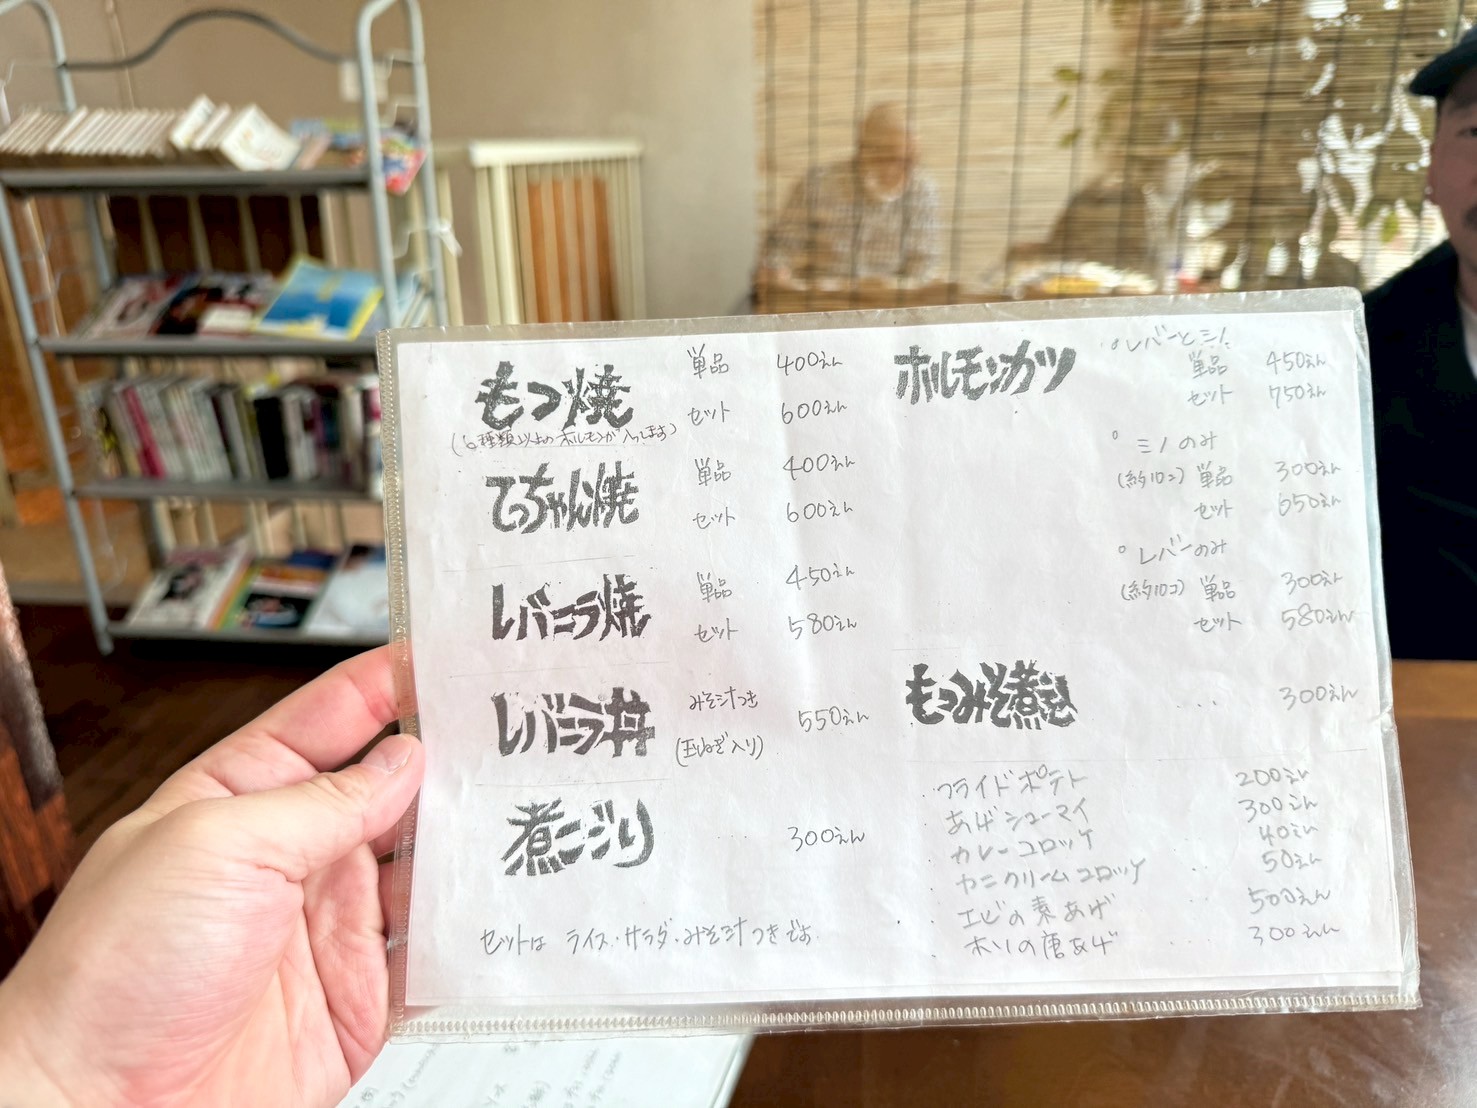 もつ焼
(6種類以上のホルモンが入ってます)
単品 400えん
セット 600えん
てっちゃん焼
単品 400えん
セット 600えん
レバニラ焼
単品 450えん
セット 580えん
レバニラ丼
みそ汁つき
(玉ねぎ入り)
550えん
煮こごり
300えん
セットは ライス・サラダ・みそ汁つきです
ホルモンカツ
レバーとミノ
単品 450えん
セット 750えん
ミノのみ
(約10コ) 単品 300えん
セット 650えん
レバーのみ
(約10コ) 単品 300えん
セット 580えん
もつみそ煮込
・・・ 300えん
フライドポテト 200えん
あげシューマイ 300えん
カレーコロッケ 40えん
カニクリームコロッケ 50えん
エビの素あげ 500えん
ホソの唐あげ 300えん